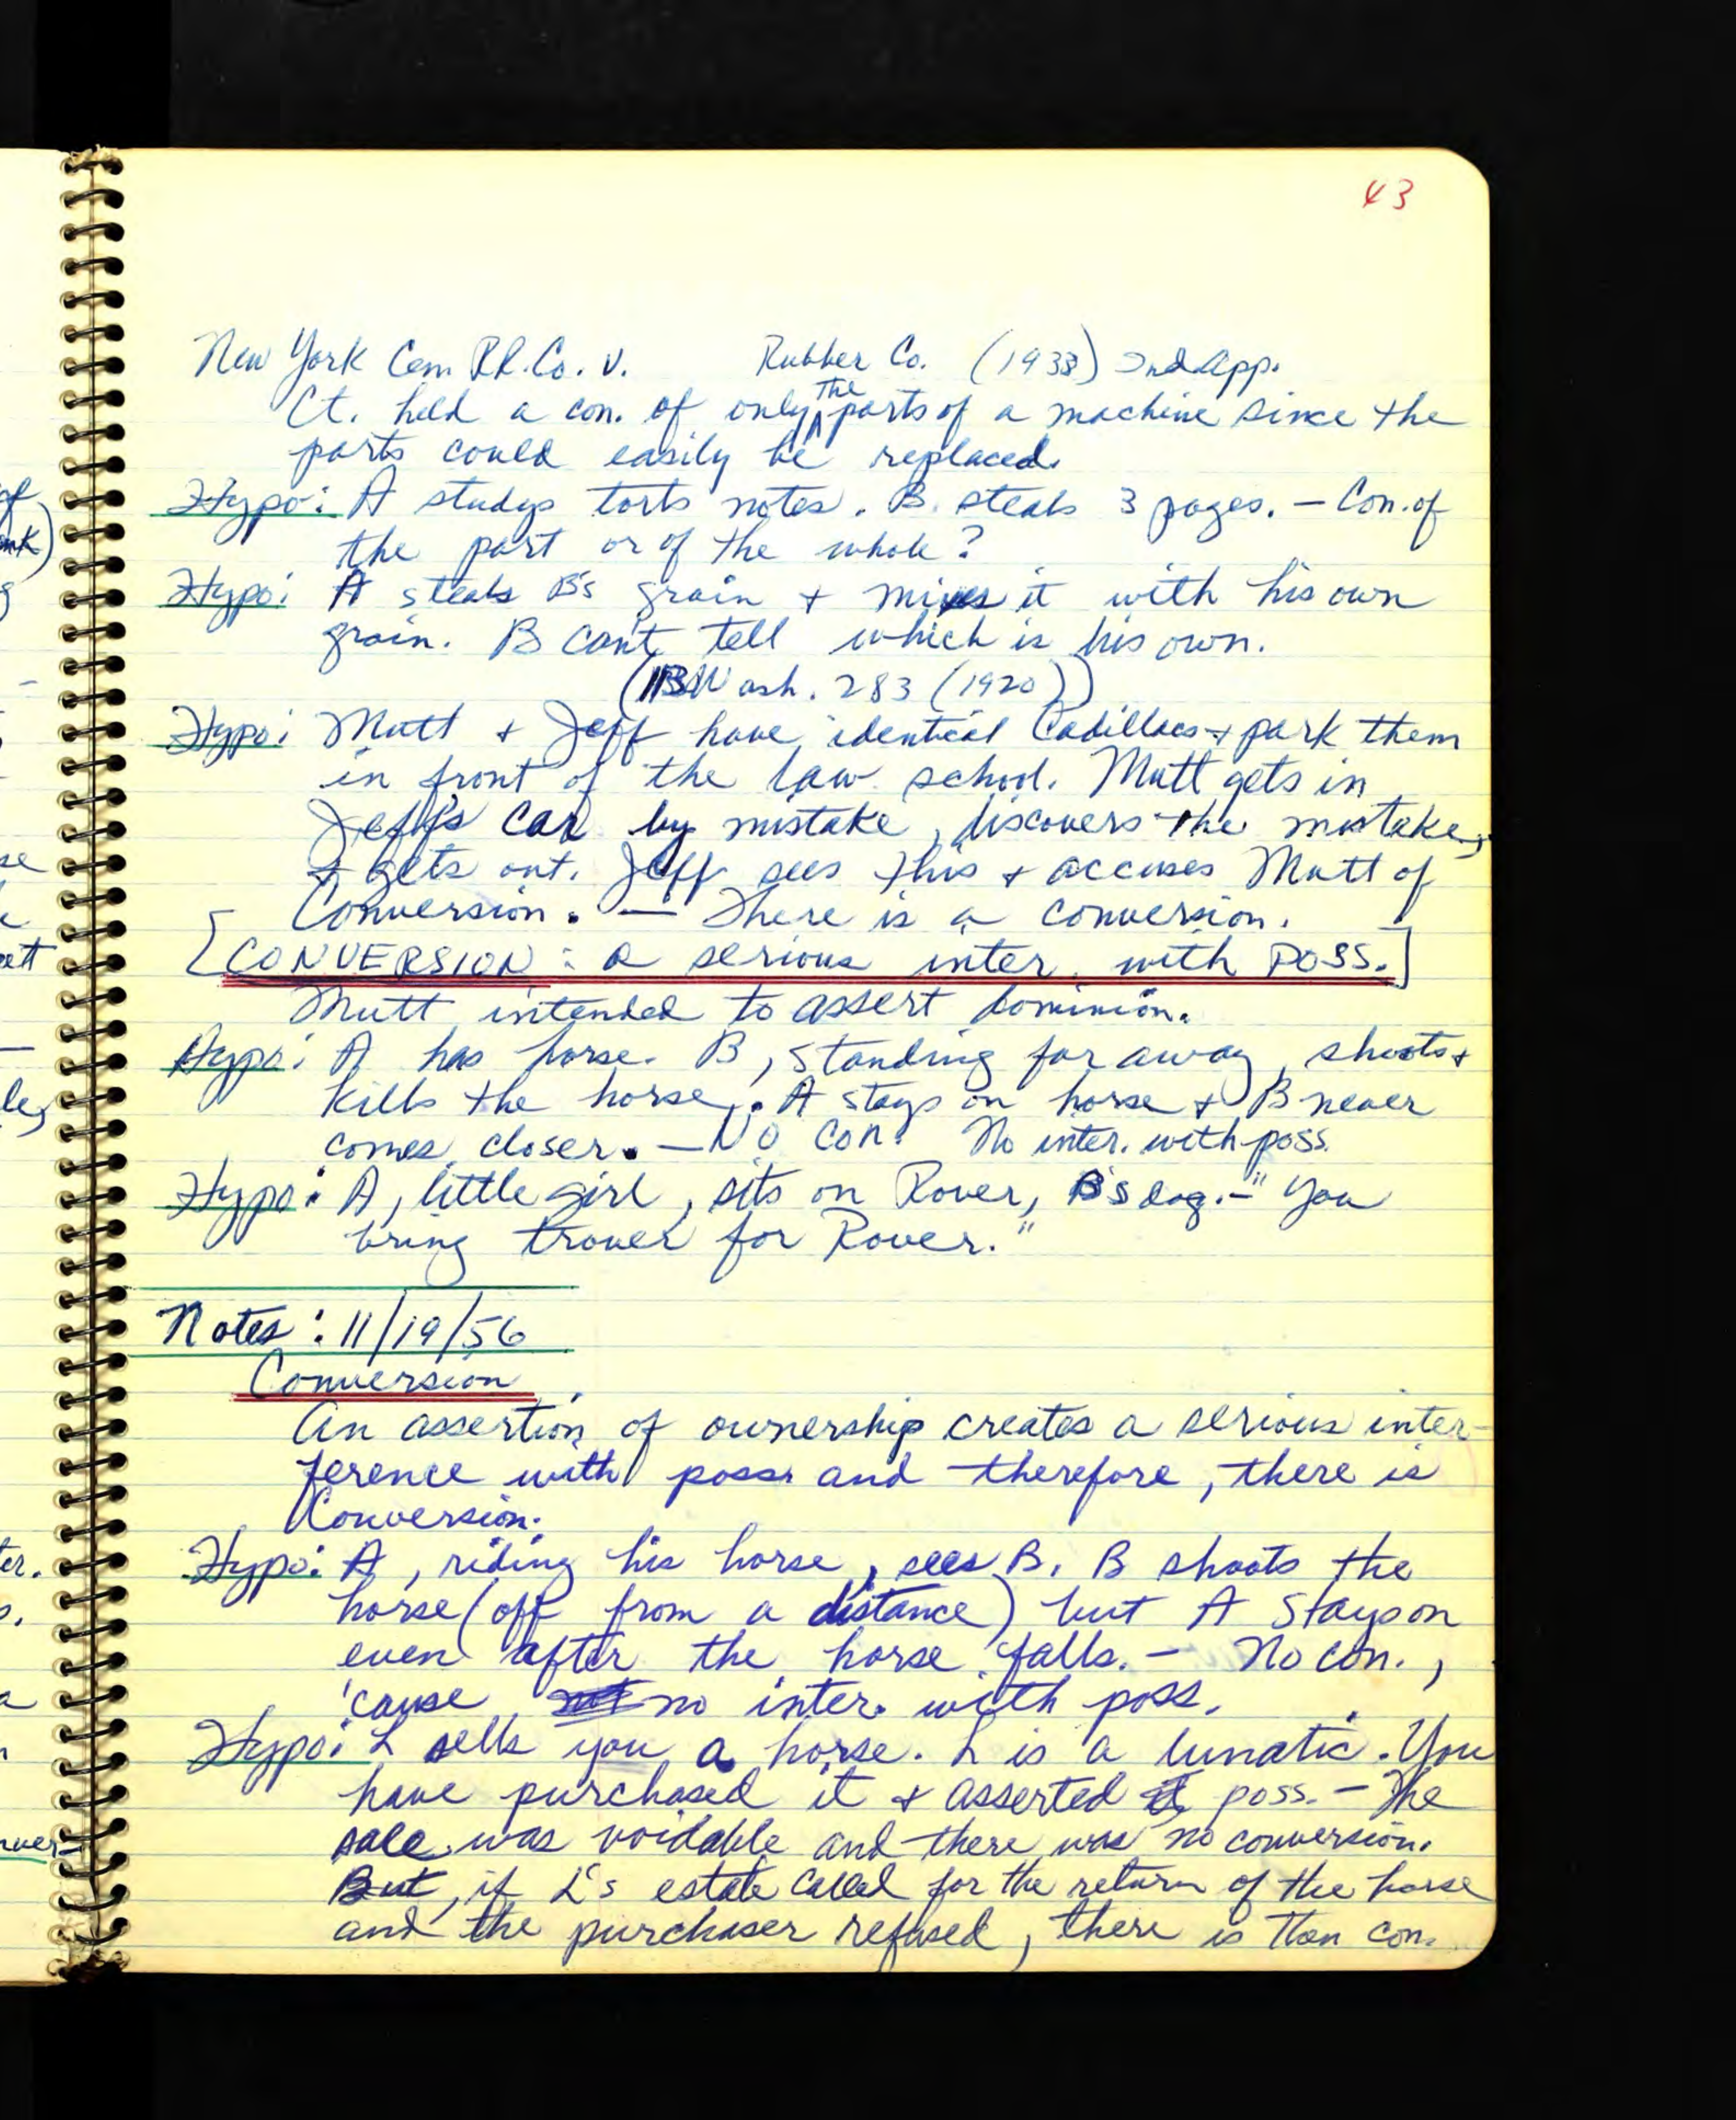 43
New York Cen R.R. Co. v. Rubber Co. (1938) 2nd App.
Ct. held a con. of only the parts of a machine since the
parts could easily be replaced.
Hypo: A studys torts notes. B steals 3 pages. — Con. of
the part or of the whole?
Hypo: A steals B's grain + mixes it with his own
grain. B can't tell which is his own.
(113 Wash. 283 (1920))
Hypo: Mutt + Jeff have identical Cadillacs + park them
in front of the law school. Mutt gets in
Jeff's car by mistake, discovers the mistake,
+ gets out. Jeff sees this + accuses Mutt of
Conversion. — There is a conversion.
[CONVERSION: a serious inter. with POSS.]
Mutt intended to assert dominion.
Hypo: A has horse. B, standing far away, shoots +
kills the horse. A stays on horse + B never
comes closer. — No con. No inter. with poss.
Hypo: A, little girl, sits on Rover, B's dog. — "You
bring trover for Rover."
Notes: 11/19/56
Conversion
An assertion of ownership creates a serious inter-
ference with poss. and therefore, there is
Conversion.
Hypo: A, riding his horse, sees B. B shoots the
horse (off from a distance) but A stays on
even after the horse falls. — No con.,
'cause no inter. with poss.
Hypo: L sells you a horse. L is a lunatic. You
have purchased it + asserted poss. — The
sale was voidable and there was no conversion.
But, if L's estate called for the return of the horse
and the purchaser refused, there is then con.